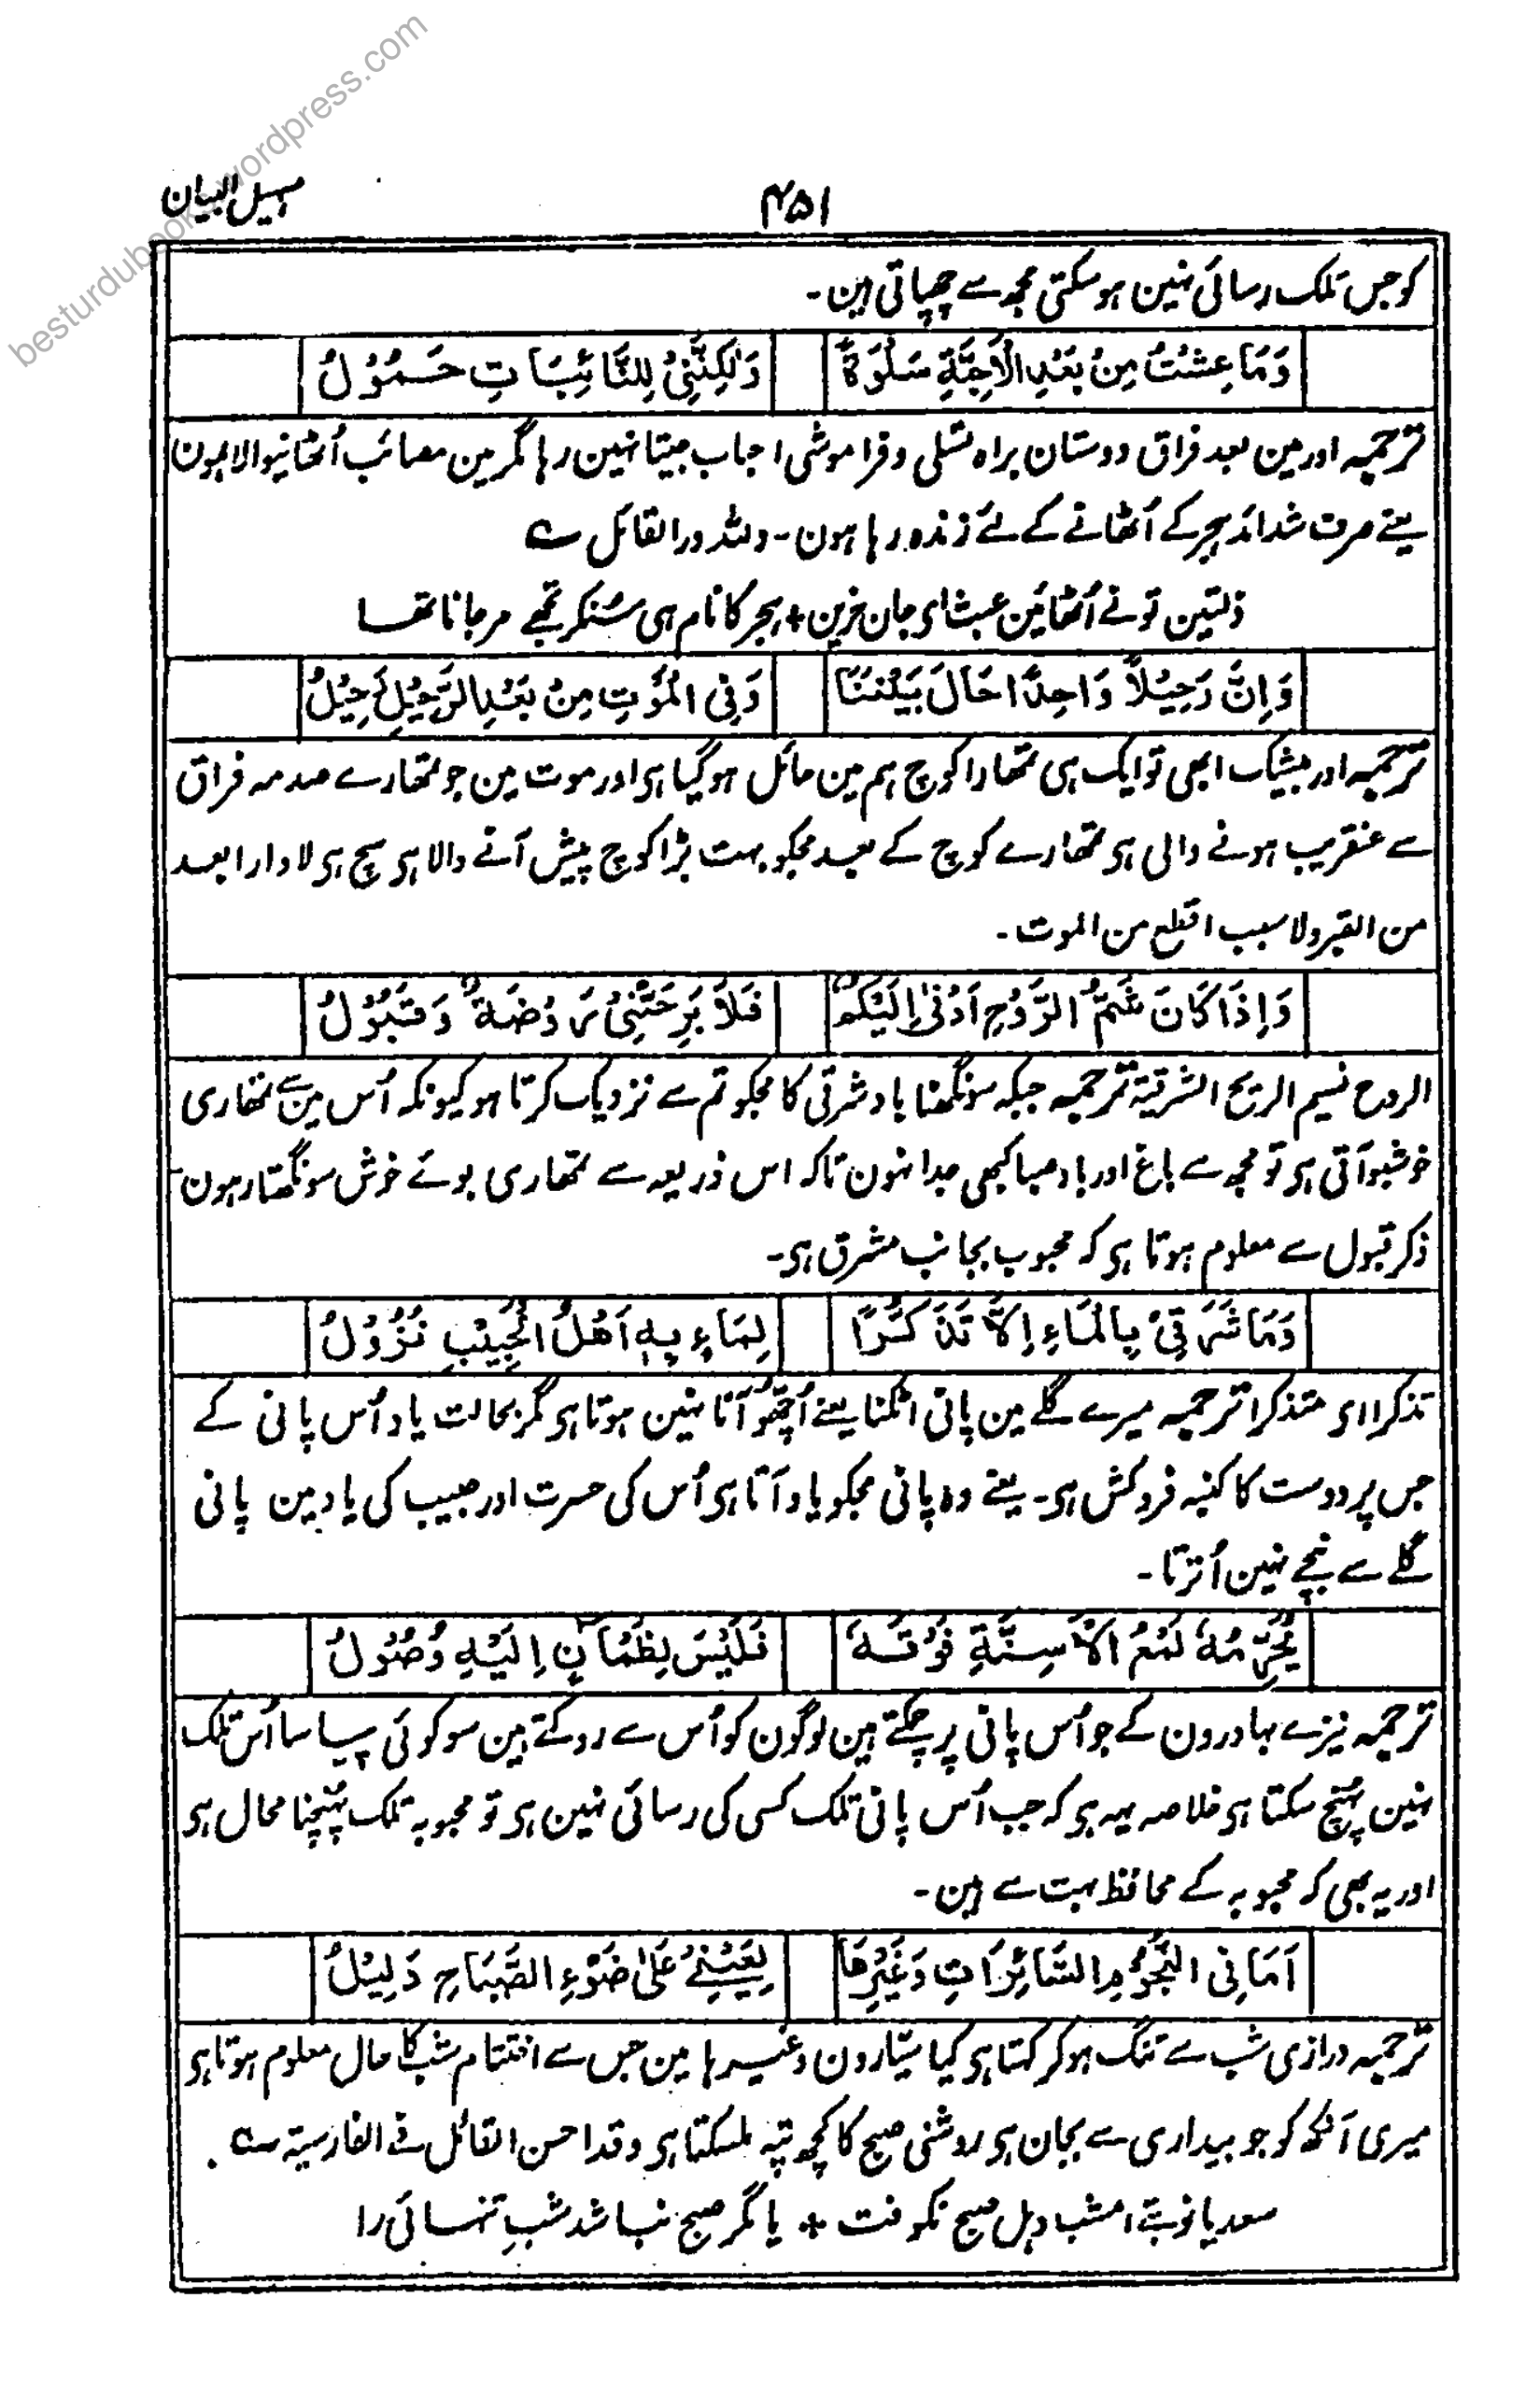 besturdubooks.wordpress.com
۴۵۱
تسہیل البیان
کو جس تلک رسائی نہین ہوسکتی مجھ سے چھپاتی ہین۔
وَمَا عِشْتُ مِنْ بَعْدِ الْاَحِبَّةِ سَلْوَةً وَلٰكِنَّنِىْ لِلنَّائِبَاتِ حَمُوْلُ
ترجمہ اور مین بعد فراق دوستان براہ تسلی وفراموشی احباب جیتا نہین رہا مگر مین مصائب اُٹھانیوالا ہون
یعنے صرف شدائد ہجر کے اُٹھانے کے لئے زندہ رہا ہون۔ وللہ در القائل ؎
ذلتین تونے اُٹھائین عبث ای جان حزین + ہجر کا نام ہی سُنکر تجھے مرجانا تھا
وَاِنَّ رَحِيْلًا وَاحِدًا حَالَ بَيْنَنَا وَفِى الْمَوْتِ مِنْ بَعْدِ الرَّحِيْلِ رَحِيْلُ
ترجمہ اور بیشک ابھی تو ایک ہی تمھارا کوچ ہم مین حائل ہوگیا ہی اور موت مین جو تمھارے صدمہ فراق
سے عنقریب ہونے والی ہی تمھارے کوچ کے بعد مجکو بہت بڑا کوچ پیش آنے والا ہی سچ ہی لا دار ابعد
من القبر ولا سبب اقطع من الموت۔
وَاِذَا كَانَ شَمُّ الرَّوْحِ اَدْنٰى اِلَيْكُمْ فَلَا بَرِحَتْنِىْ رَوْضَةٌ وَقَبُوْلُ
الروح نسیم الریح الشرقیۃ ترجمہ جبکہ سونگھنا باد شرقی کا مجکو تم سے نزدیک کرتا ہو کیونکہ اُس مین سے تمھاری
خوشبو آتی ہی تو مجھ سے باغ اور باد صبا کبھی جدا نہون تاکہ اس ذریعہ سے تمھاری بوئے خوش سونگھتا رہون
ذکر قبول سے معلوم ہوتا ہی کہ محبوب بجانب مشرق ہی۔
وَمَا شَرَقِىْ بِالْمَاءِ اِلَّا تَذَكُّرًا لِمَاءٍ بِهٖ اَهْلُ الْحَبِيْبِ نُزُوْلُ
تذکرا ای متذکرا ترجمہ میرے گلے مین پانی اٹکنا یعنے اُچھّو آنا نہین ہوتا ہی مگر بحالت یاد اُس پانی کے
جس پر دوست کا کنبہ فروکش ہی۔ یعنے وہ پانی مجکو یاد آتا ہی اُس کی حسرت اور حبیب کی یاد مین پانی
گلے سے نیچے نہین اُترتا۔
يُحَرِّمُهٗ لَمْعُ الْاَسِنَّةِ فَوْقَهٗ فَلَيْسَ لِظَمْاٰنٍ اِلَيْهِ وُصُوْلُ
ترجمہ نیزے بہادرون کے جو اُس پانی پر چمکتے ہین لوگون کو اُس سے روکتے ہین سو کوئی پیاسا اُس تلک
نہین پہنچ سکتا ہی خلاصہ یہہ ہی کہ جب اُس پانی تلک کسی کی رسائی نہین ہی تو محبوبہ تلک پہنچنا محال ہی
اور یہ بھی کہ محبوبہ کے محافظ بہت سے ہین۔
اَمَا فِى النُّجُوْمِ السَّائِرَاتِ وَغَيْرِهَا لِعَيْنِىْ عَلٰى ضَوْءِ الصَّبَاحِ دَلِيْلُ
ترجمہ درازی شب سے تنگ ہوکر کہتا ہی کیا سیّارون وغیرہا مین جس سے اختتام شب کا حال معلوم ہوتا ہی
میری آنکھ کو جو بیداری سے بجان ہی روشنی صبح کا کچھ پتہ ملسکتا ہی وقد احسن القائل فی الفارسیۃ ؎
سعدیا نوبتے امشب دہل صبح نکوفت + یا مگر صبح نباشد شبِ تنہائی را